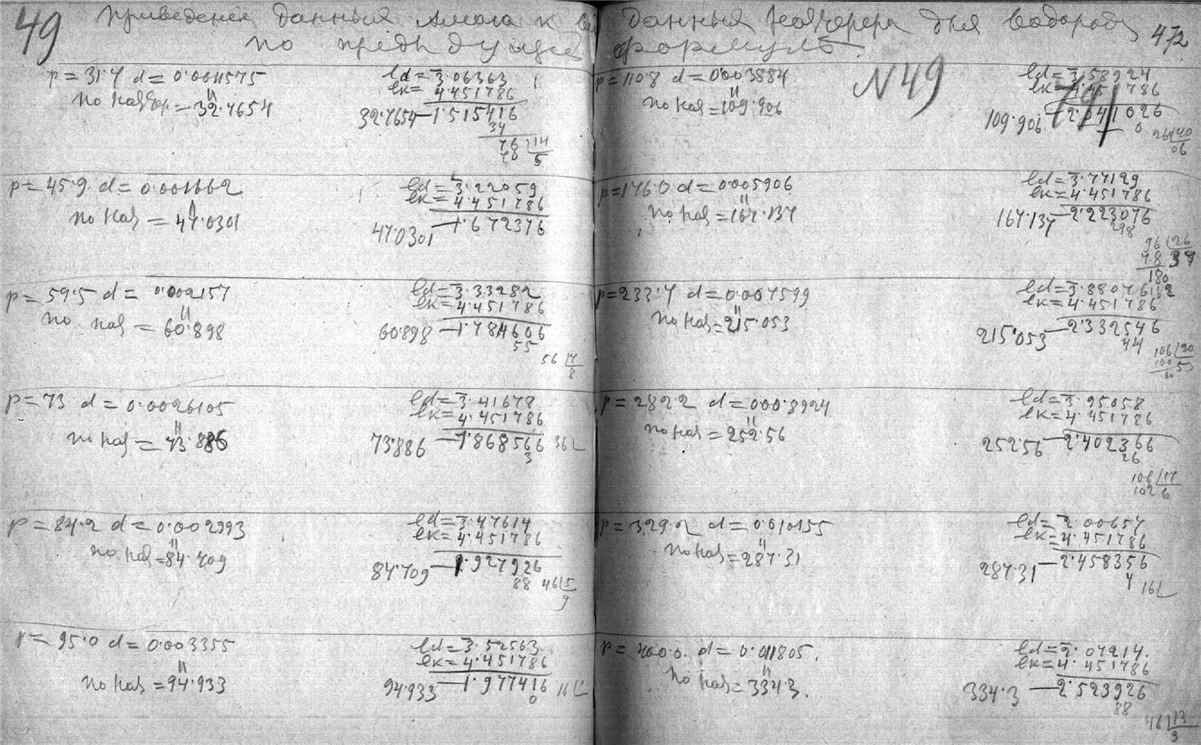 49 Приведение данных Амага к
по предыдущей
p = 31·7 d = 0·0011575
по Кальдер = 32·7654
ld = 3̄·06363
lk = 4·451786
32·7654 — 1·515416
34
76 | 14
70 | 5
p = 45·9 d = 0·001662
по Кал = 47·0301
ld = 3̄·22059
lk = 4·451786
47·0301 — 1·672376
p = 59·5 d = 0·002157
по Кал = 60·898
ld = 3̄·33282
lk = 4·451786
60·898 — 1·784606
55
56 | 7
8
p = 73 d = 0·0026105
по Кал = 73·886
ld = 3̄·41678
lk = 4·451786
73·886 — 1·868566 36
3
p = 84·2 d = 0·002993
по Кал = 84·709
ld = 3̄·47614
lk = 4·451786
84·709 — 1·927926
88 46 | 5
9
p = 95·0 d = 0·003355
по Кал = 94·933
ld = 3̄·52563
lk = 4·451786
94·933 — 1·977416 16
0
данных для водорода 472
формуле
N49
p = 110·8 d = 0·003884
по Кал = 109·906
ld = 3̄·58924
lk = 4·451786
109·906 — 2·041026
0 26 | 40
06
p = 176·0 d = 0·005906
по Кал = 167·137
ld = 3̄·77129
lk = 4·451786
167·137 — 2·223076
298
96 | 26
78 | 37
180
p = 233·7 d = 0·007599
по Кал = 215·053
ld = 3̄·88076
lk = 4·451786
215·053 — 2·332546
44
106 | 20
100 | 5
p = 282·2 d = 0·008924
по Кал = 252·56
ld = 3̄·95058
lk = 4·451786
252·56 — 2·402366
26
106 | 17
102 6
p = 329·2 d = 0·010155
по Кал = 287·31
ld = 2̄·00657
lk = 4·451786
287·31 — 2·458356
4 16
p = 400·0 d = 0·011805.
по Кал = 334·3.
ld = 2̄·07214.
lk = 4·451786
334·3 — 2·523926
88
46 | 13
3